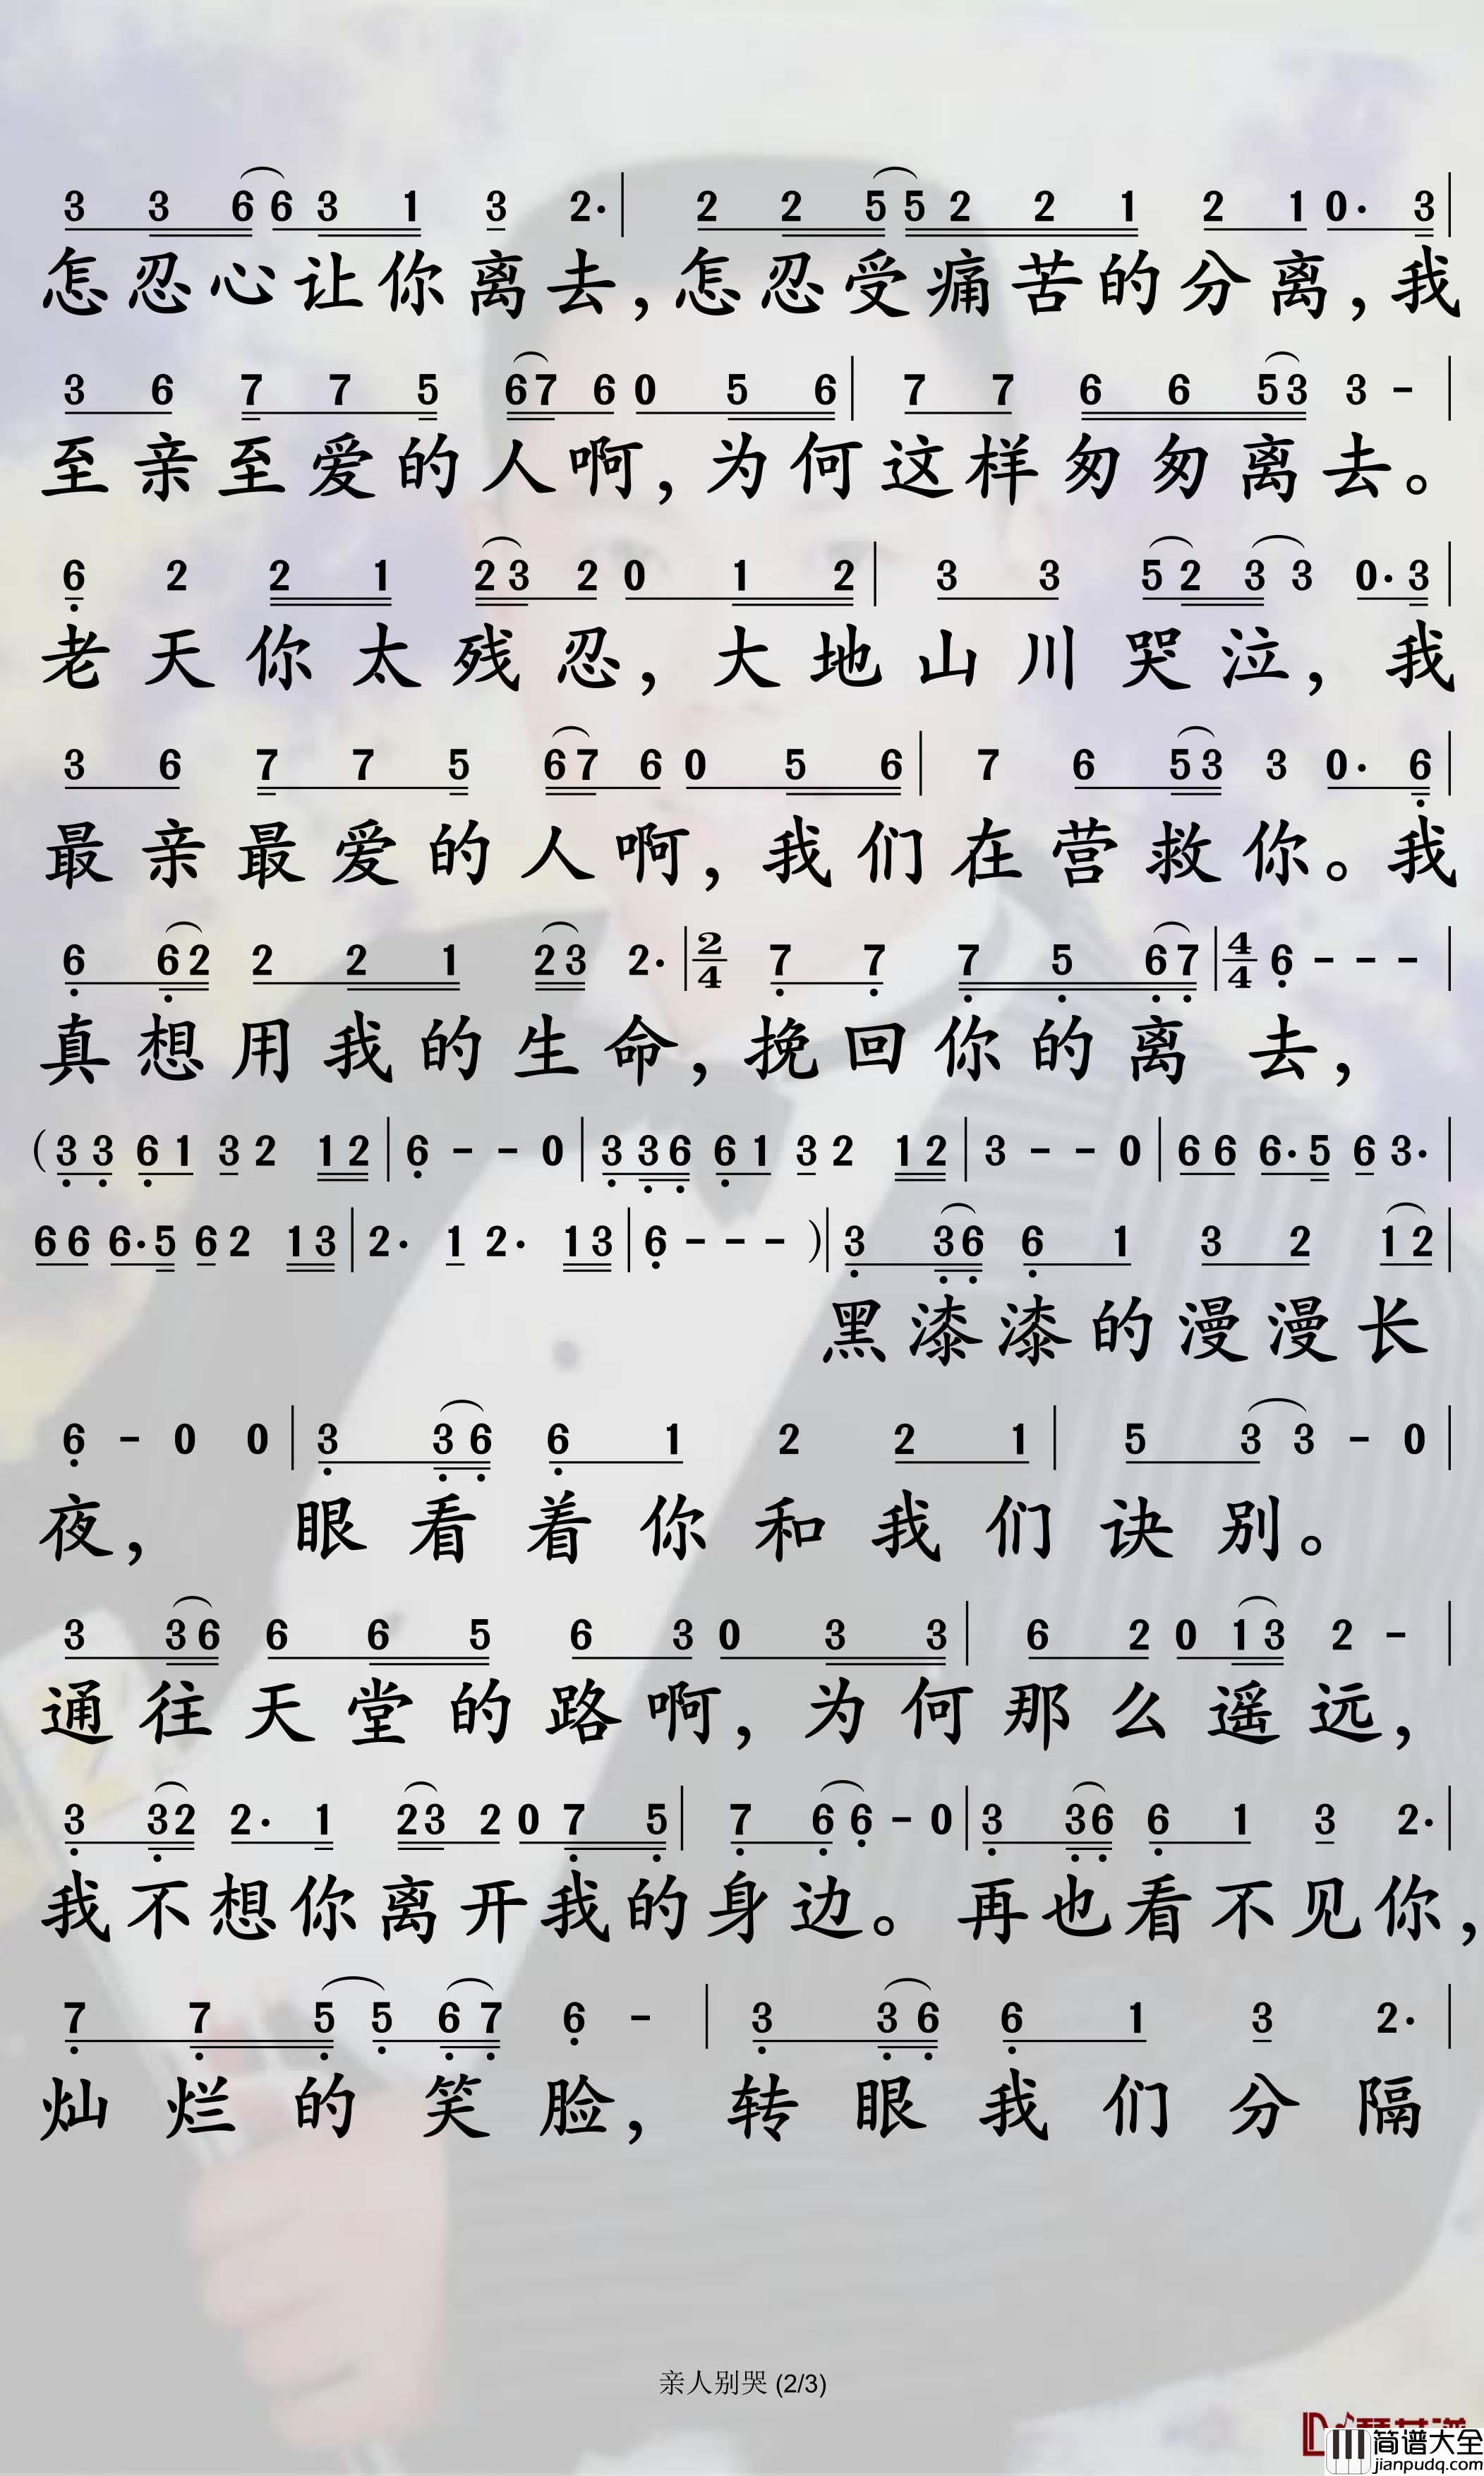 3 3 6 6 3 1 3 2· | 2 2 5 5 2 2 1 2 1 0· 3 |
怎忍心让你离去,怎忍受痛苦的分离,我
3 6 7 7 5 6 7 6 0 5 6 | 7 7 6 6 5 3 3 - |
至亲至爱的人啊,为何这样匆匆离去。
6 2 2 1 2 3 2 0 1 2 | 3 3 5 2 3 3 0· 3 |
老天你太残忍,大地山川哭泣,我
3 6 7 7 5 6 7 6 0 5 6 | 7 6 5 3 3 0· 6 |
最亲最爱的人啊,我们在营救你。我
6 6 2 2 2 1 2 3 2· | 2/4 7 7 7 5 6 7 | 4/4 6 - - - |
真想用我的生命,挽回你的离去,
( 3 3 6 1 3 2 1 2 | 6 - - 0 | 3 3 6 6 1 3 2 1 2 | 3 - - 0 | 6 6 6· 5 6 3· |
6 6 6· 5 6 2 1 3 | 2· 1 2· 1 3 | 6 - - - ) | 3 3 6 6 1 3 2 1 2 |
黑漆漆的漫漫长
6 - 0 0 | 3 3 6 6 1 2 2 1 | 5 3 3 - 0 |
夜,眼看着你和我们诀别。
3 3 6 6 6 5 6 3 0 3 3 | 6 2 0 1 3 2 - |
通往天堂的路啊,为何那么遥远,
3 3 2 2· 1 2 3 2 0 7 5 | 7 6 6 - 0 | 3 3 6 6 1 3 2· |
我不想你离开我的身边。再也看不见你,
7 7 5 5 6 7 6 - | 3 3 6 6 1 3 2· |
灿烂的笑脸,转眼我们分隔
亲人别哭 (2/3)
简谱大全
jianpudq.com